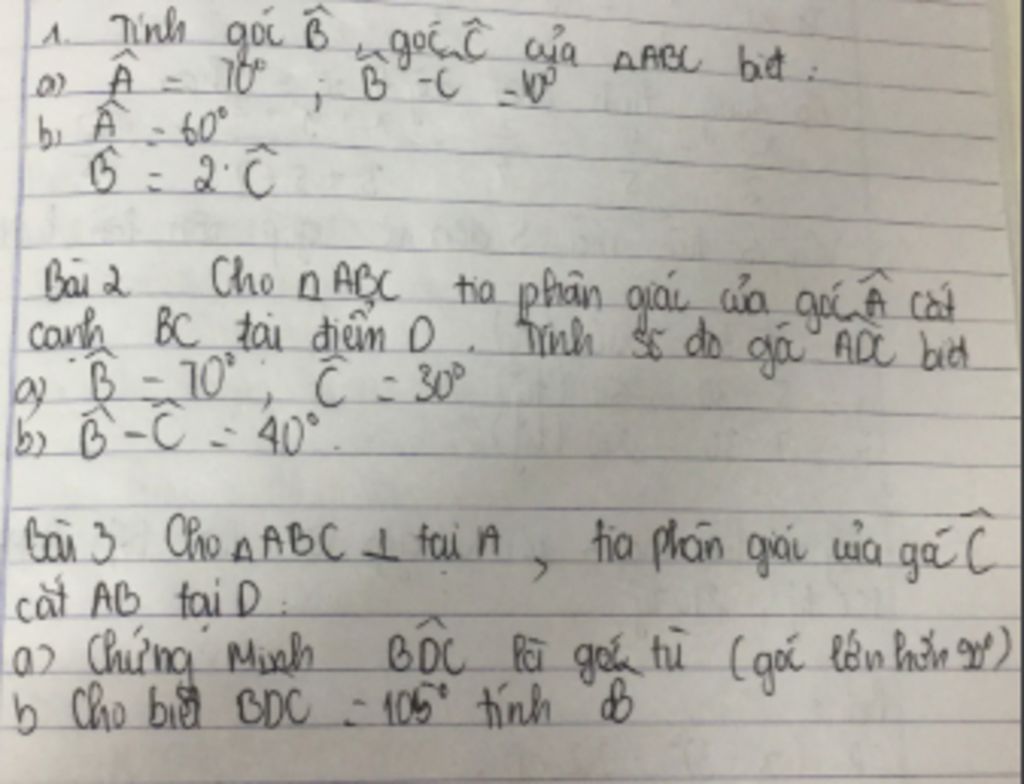 1. Tính góc B̂, góc Ĉ của △ABC biết:
a) Â = 70° ; B̂ - C = 10°
b) Â = 60°
B̂ = 2. Ĉ
Bài 2 Cho △ABC tia phân giác của góc Â cắt
cạnh BC tại điểm D. Tính số đo góc ADC biết
a) B̂ = 70°, Ĉ = 30°
b) B̂ - Ĉ = 40°.
Bài 3 Cho △ABC ⊥ tại A, tia phân giác của góc Ĉ
cắt AB tại D.
a) Chứng Minh BD̂C là góc tù (góc lớn hơn 90°)
b Cho biết BDC = 105° tính